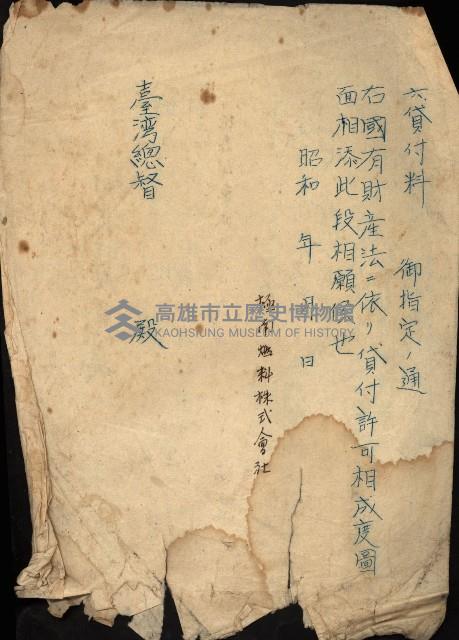 六貸付料　御指定ノ通
右國有財産法ニ依リ貸付許可相成度圖
面相添此段相願候也
昭和　年　月　日
南燃料株式會社
臺湾總督　殿
高雄市立歷史博物館
KAOHSIUNG MUSEUM OF HISTORY